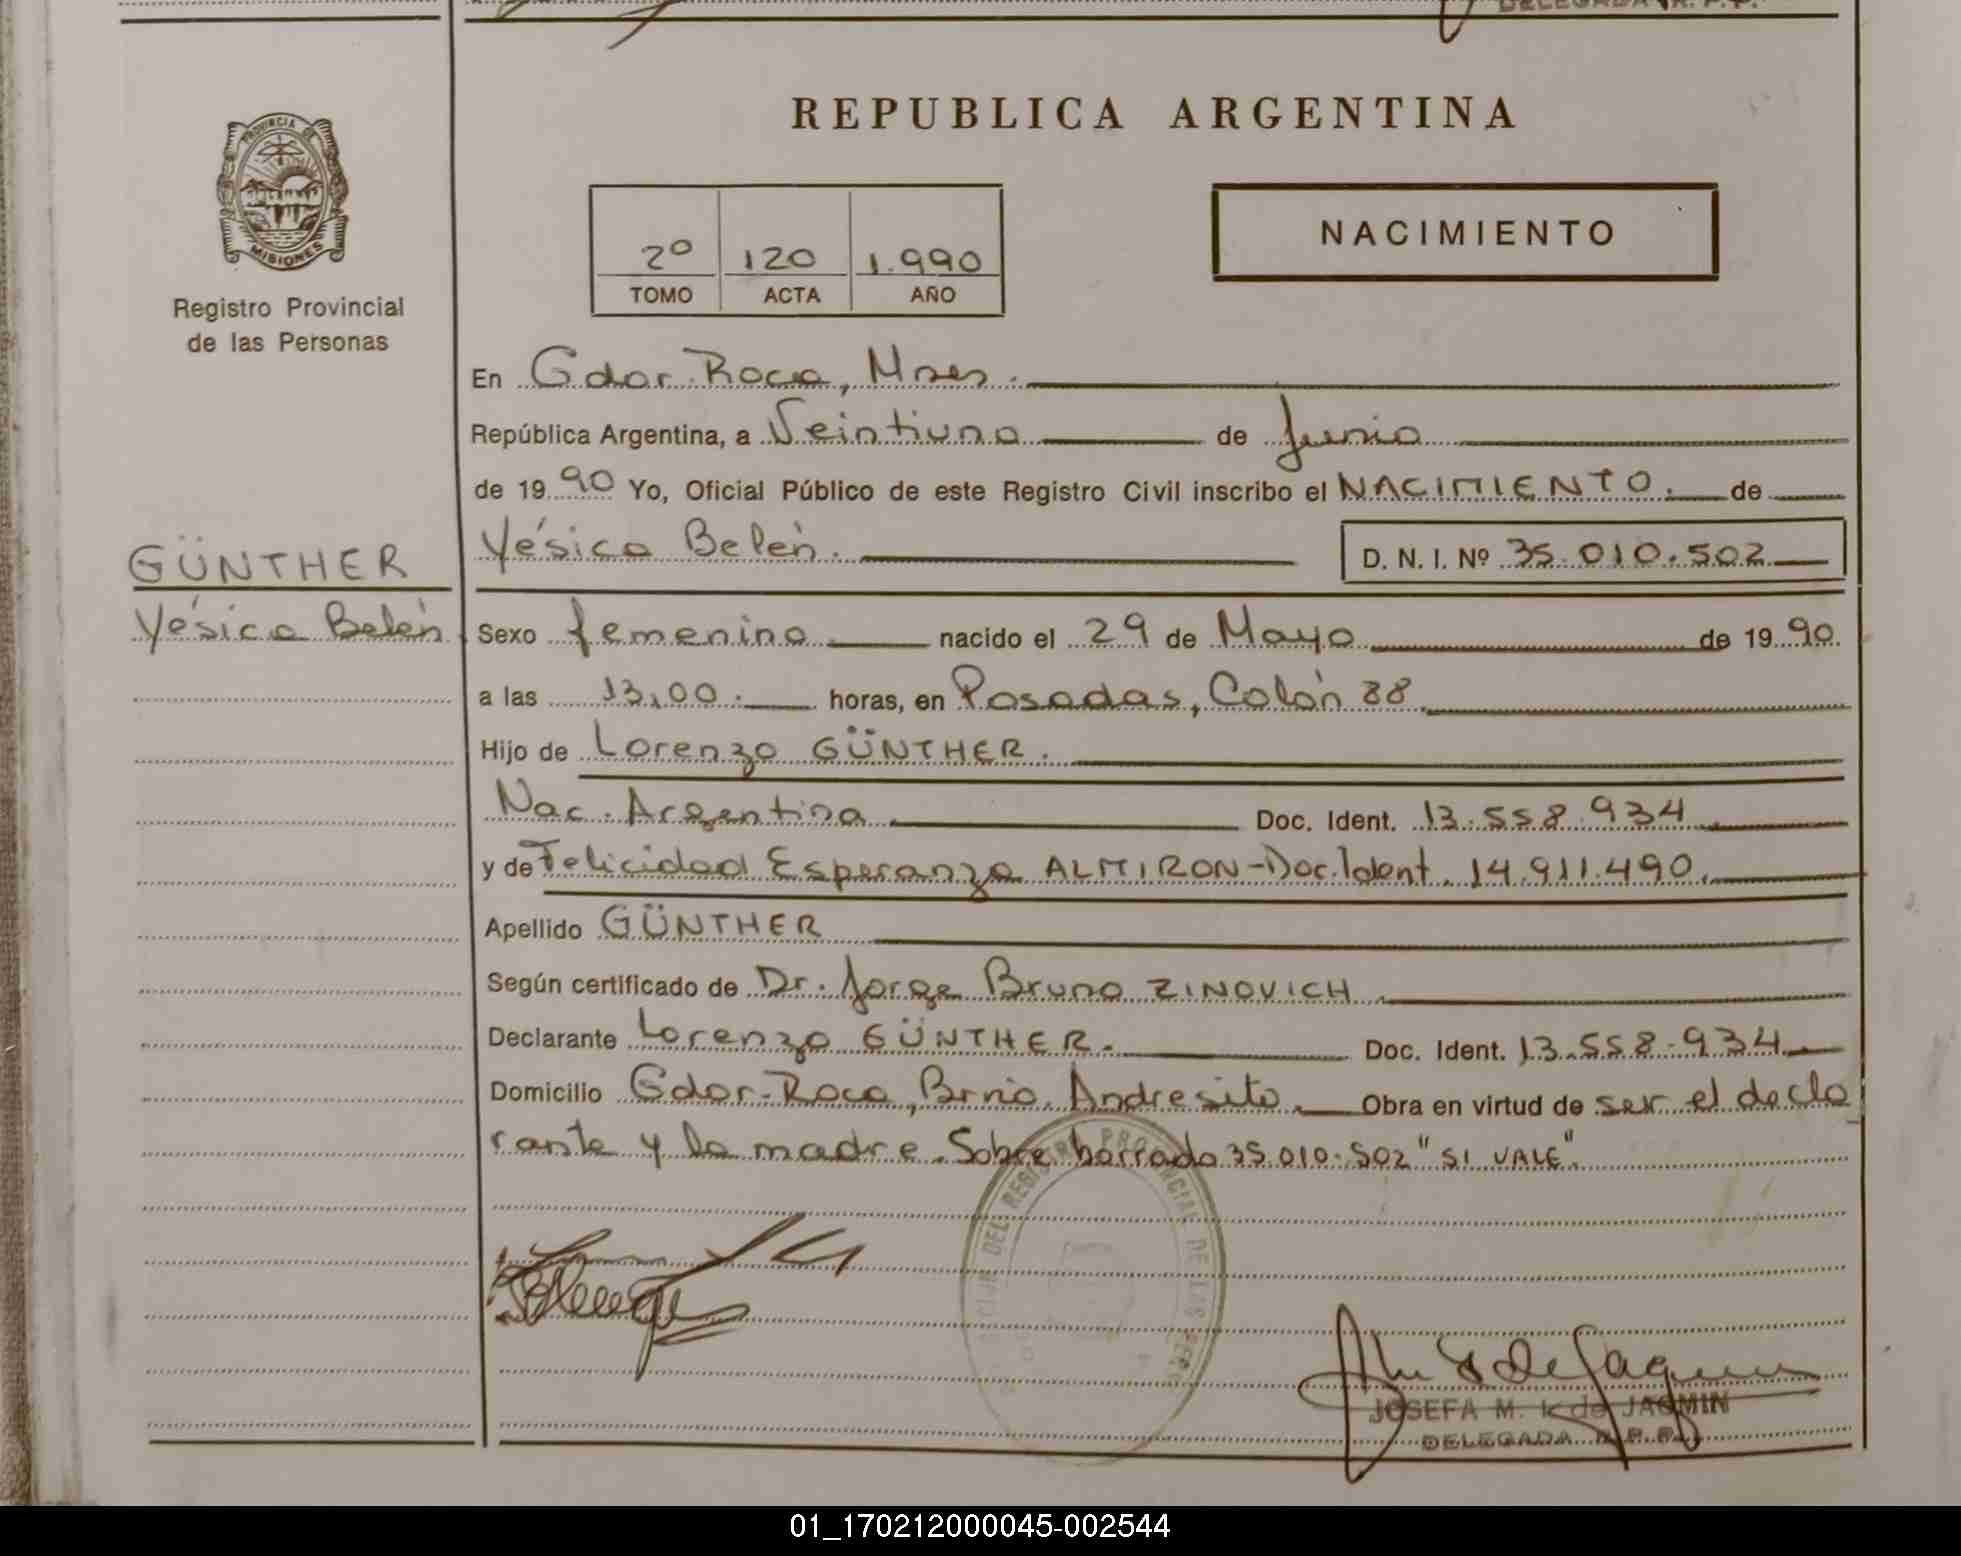 DELEGADA R. P. P.
REPUBLICA ARGENTINA
PROVINCIA DE
MISIONES
Registro Provincial
de las Personas
2º 120 1.990
TOMO ACTA AÑO
NACIMIENTO
En Gdor. Roca, Mnes.
República Argentina, a Veintiuno de Junio
de 1990 Yo, Oficial Público de este Registro Civil inscribo el NACIMIENTO. de
Yésica Belén. D. N. I. Nº 35.010.502
GÜNTHER
Yésica Belén
Sexo femenino nacido el 29 de Mayo de 1990.
a las 13,00. horas, en Posadas, Colón 88
Hijo de Lorenzo GÜNTHER.
Nac. Argentina Doc. Ident. 13.558.934
y de Felicidad Esperanza ALMIRON-Doc.Ident. 14.911.490.
Apellido GÜNTHER
Según certificado de Dr. Jorge Bruno ZINOVICH
Declarante Lorenzo GÜNTHER. Doc. Ident. 13.558.934
Domicilio Gdor-Roca, Brrio. Andresito. Obra en virtud de ser el decla
rante y la madre. Sobre borrado 35.010.502 "SI VALE".
DEL REGISTRO PROVINCIAL DE LAS
JOSEFA M. K de JAQMIN
DELEGADA R. P. P.
01_170212000045-002544